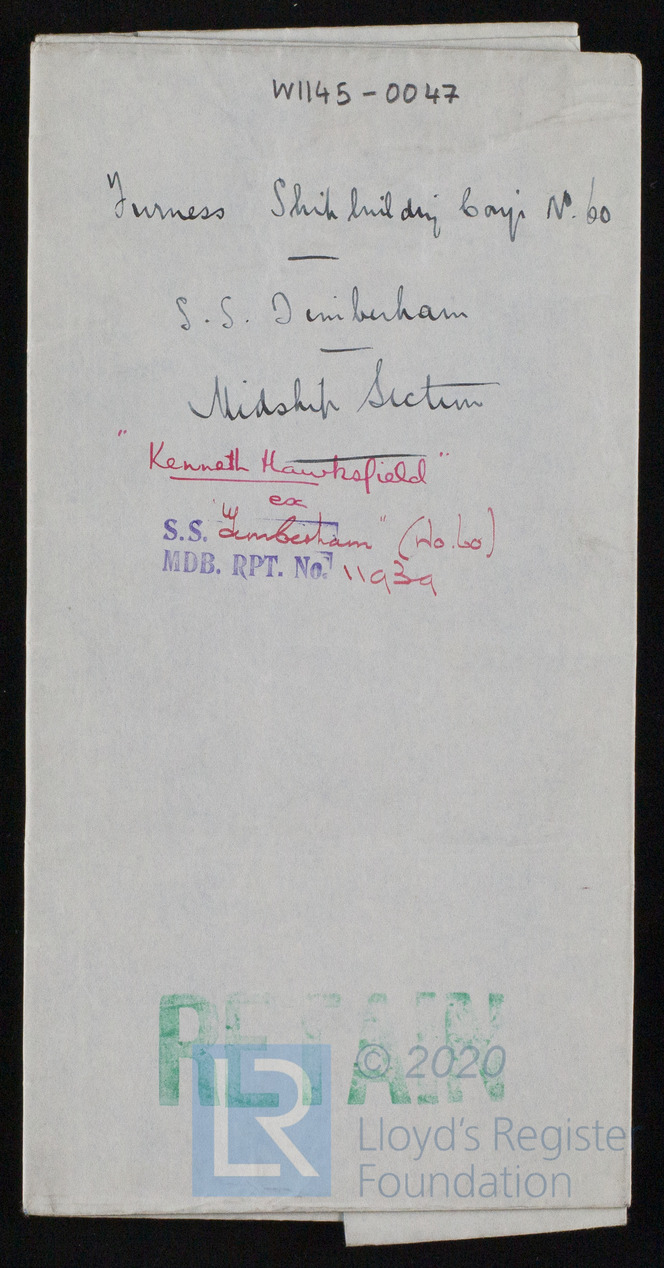 W1145-0047
Furness Shipbuilding Coy's No. 60
S.S. Dimberham
Midship Section
"Kenneth Hawksfield"
ex
S.S. "Wimberham" (No. 60)
MDB. RPT. No. 11939
RETAIN
© 2020
LR
Lloyd's Register
Foundation